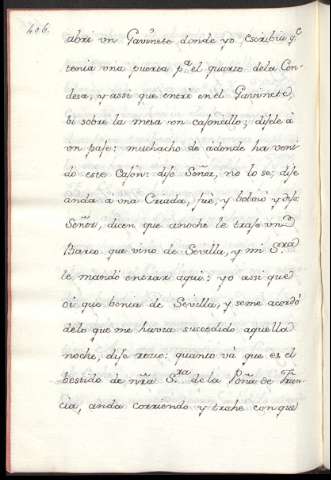 406.
abri un Gavinete donde yo escribia q.e
tenia una puerta p.a el quarto dela Con-
desa, y assi que entrè en el Gavinete
bi sobre la mesa un cajoncillo; dijele à
un paje: muchacho de adonde ha veni
do este Cajon: dijo Señor, no lo se; dije
anda a una Criada, fue, y bolviò y dijo
Señor, dicen que anoche le trajo un
Barco que vino de Sevilla, y mi S.ra
le mandò entrar aqui: yo assi que
oi que benia de Sevilla, y seme acordò
delo que me havia succedido aquella
noche, dije rezio: quanto và que es el
bestido de nrã S.ra de la Poña de Fran-
cia, anda corriendo y trahe con que